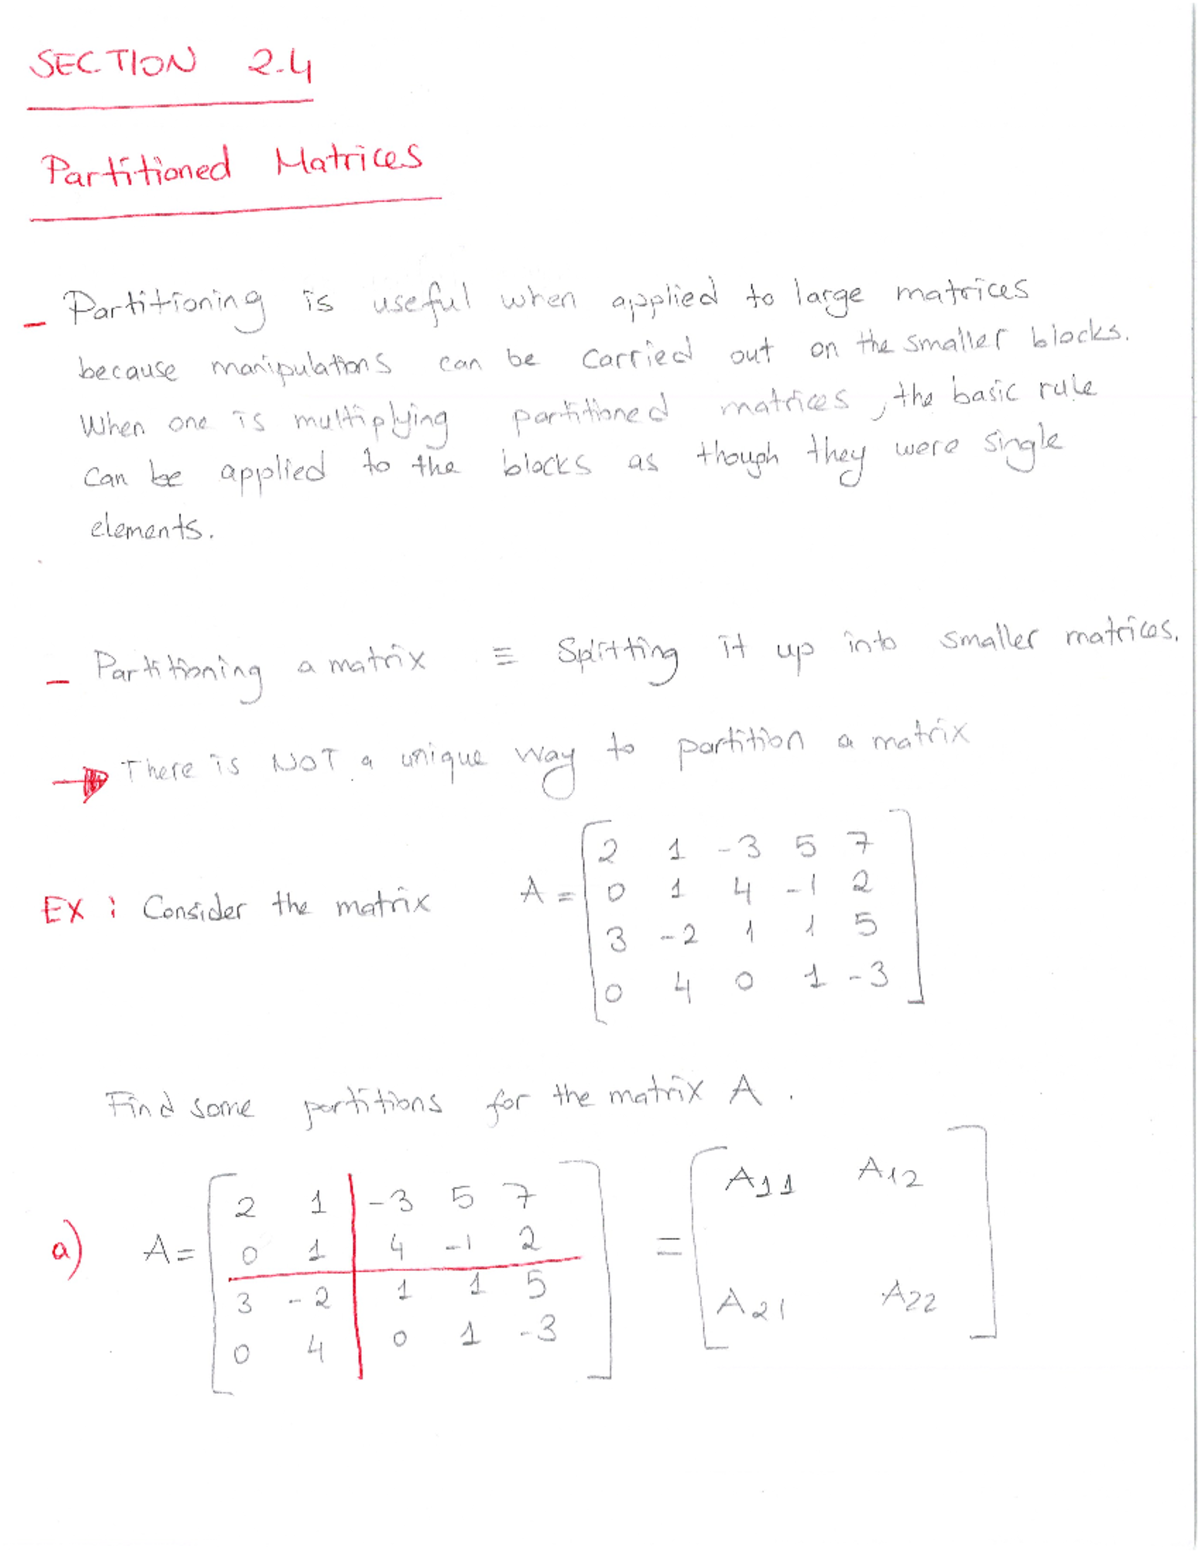 SECTION 2.4
Partitioned Matrices
- Partitioning is useful when applied to large matrices
because manipulations can be carried out on the smaller blocks.
When one is multiplying partitioned matrices, the basic rule
can be applied to the blocks as though they were single
elements.
- Partitioning a matrix ≡ Splitting it up into smaller matrices.
→ There is NOT a unique way to partition a matrix
EX : Consider the matrix A =
2 1 -3 5 7
0 1 4 -1 2
3 -2 1 1 5
0 4 0 1 -3
Find some partitions for the matrix A.
a) A =
2 1 -3 5 7
0 1 4 -1 2
3 -2 1 1 5
0 4 0 1 -3
=
A11 A12
A21 A22